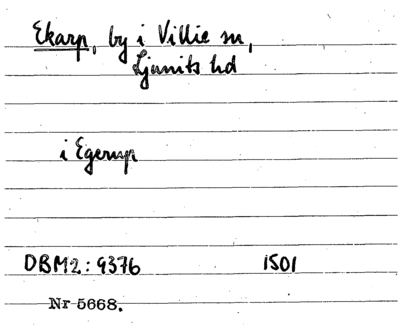 Ekarp, by i Villie sn,
Ljunits hd
i Egerup
DBM2: 9376 1501
Nr 5668.